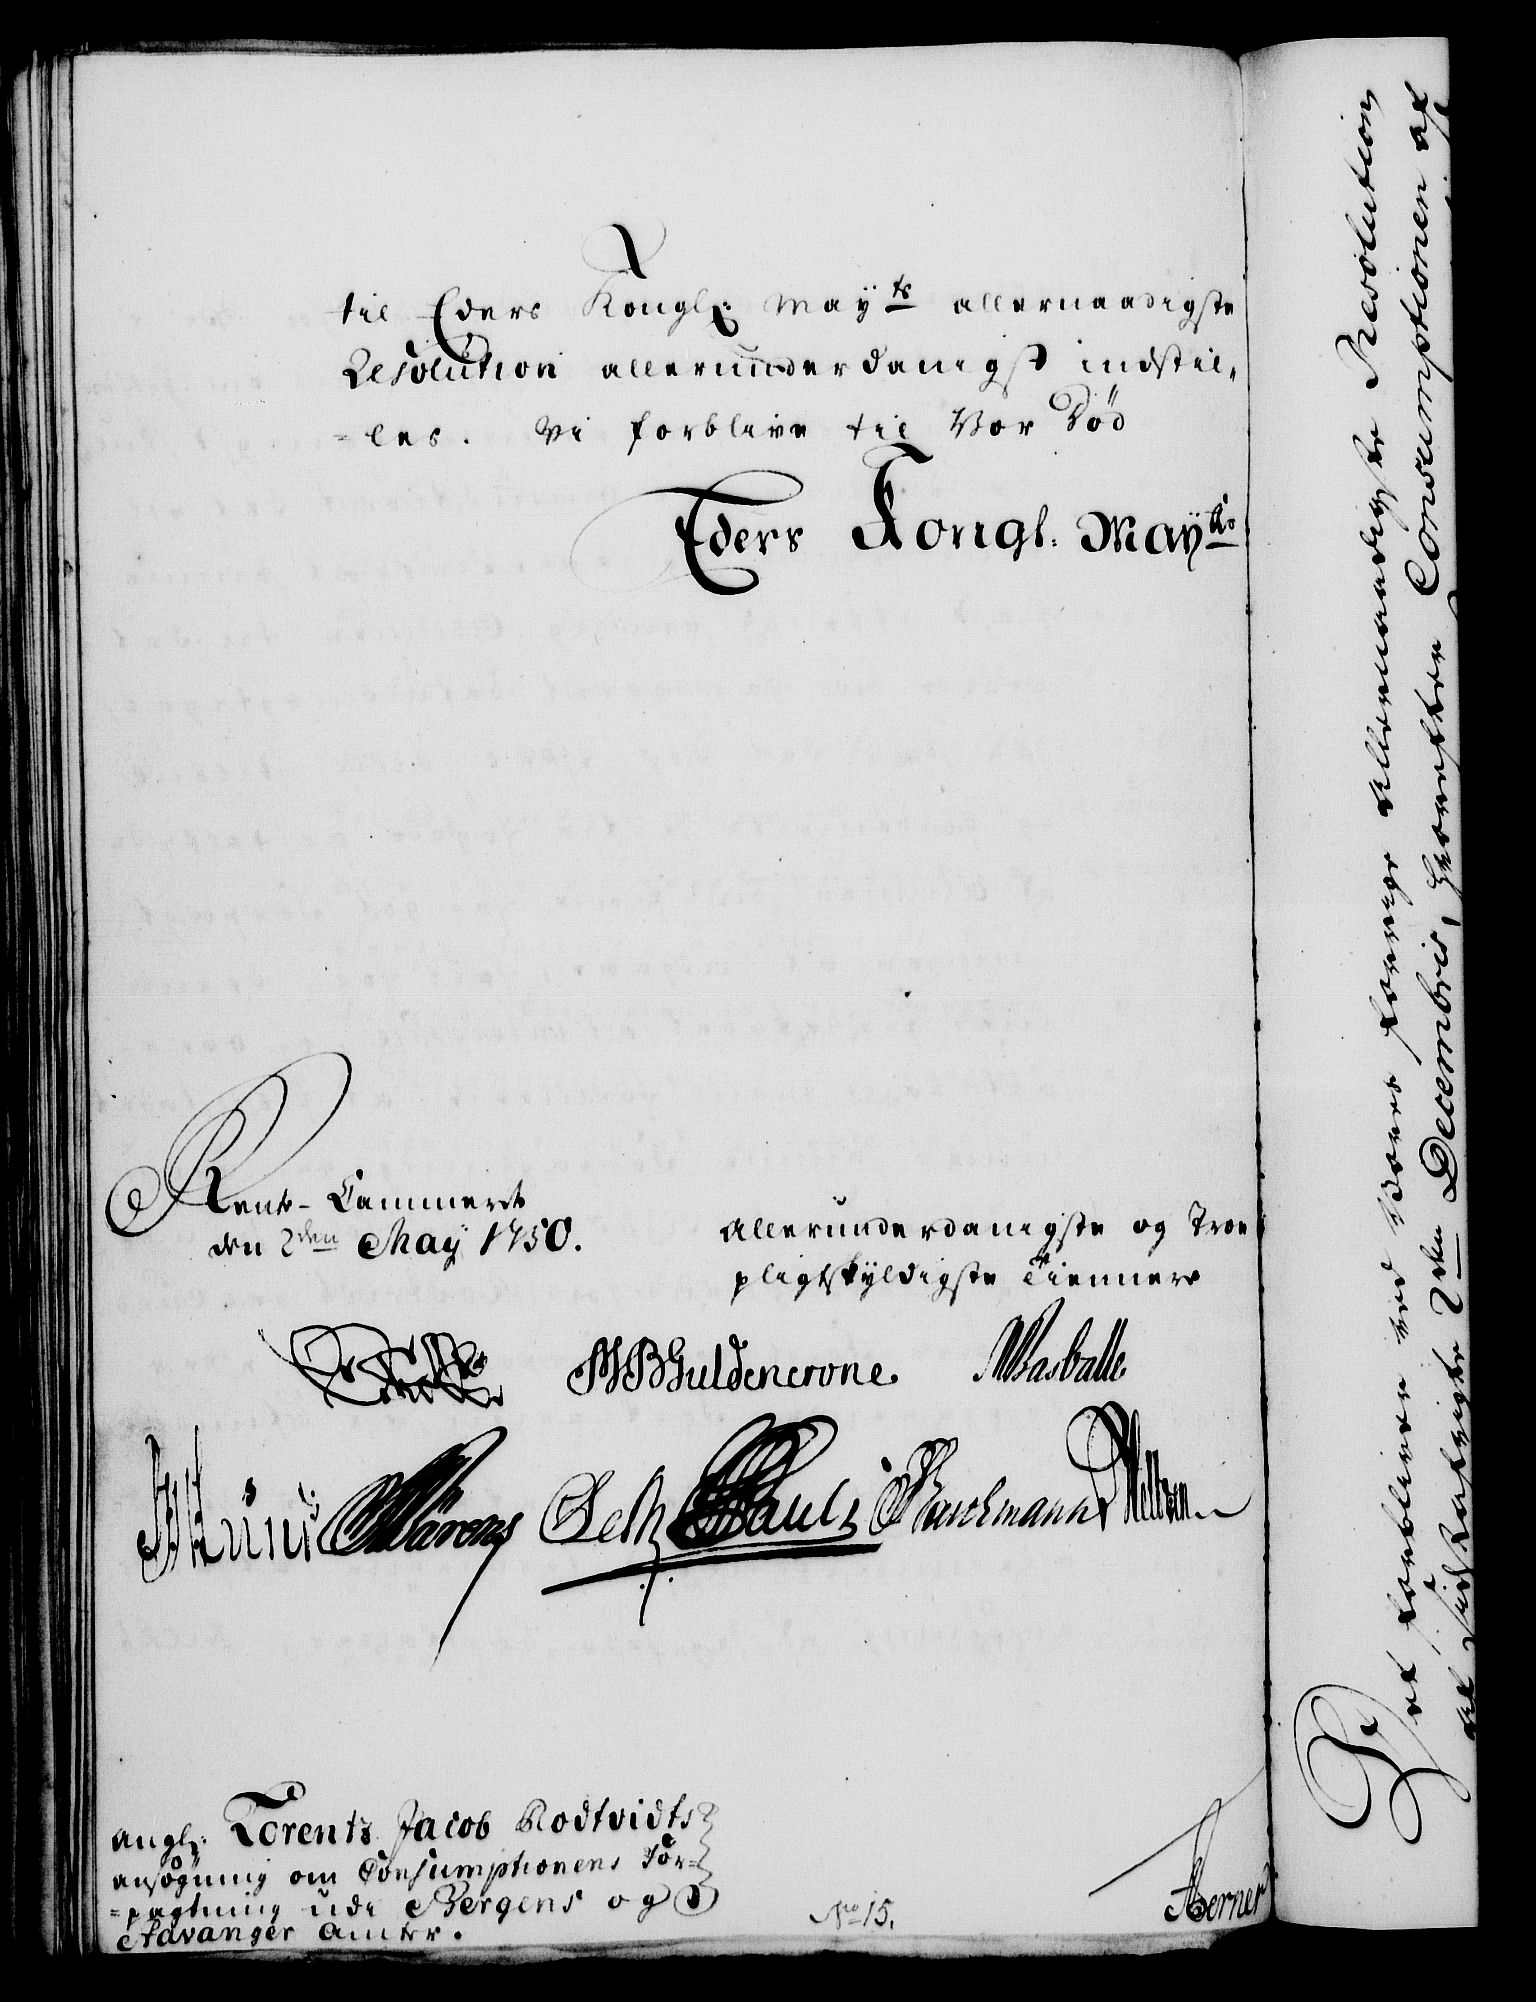 til Eders Kongl: Mayts allernaadigste
Resolution allerunderdanigst indstil,
=les. Vi forblive til Vor Død
Eders Kongl. Mayts
Rente-Cammeret
den 2den May 1750.
Allerunderdanigste og Troe
pligtskyldigste Tiennere
MBGuldencrone.
Basballe
Pauli
angl: Lorentz Jacob Rodtvidts
ansøgning om Consumptionens For-
=pagtning udi Bergens og
Stavanger Amter.
No 15.
Berner
Det forbliver ved Vores forrige allernaadigste Resolution
af sidstafvigte 2den Decembris, hvorefter Consumptionen af